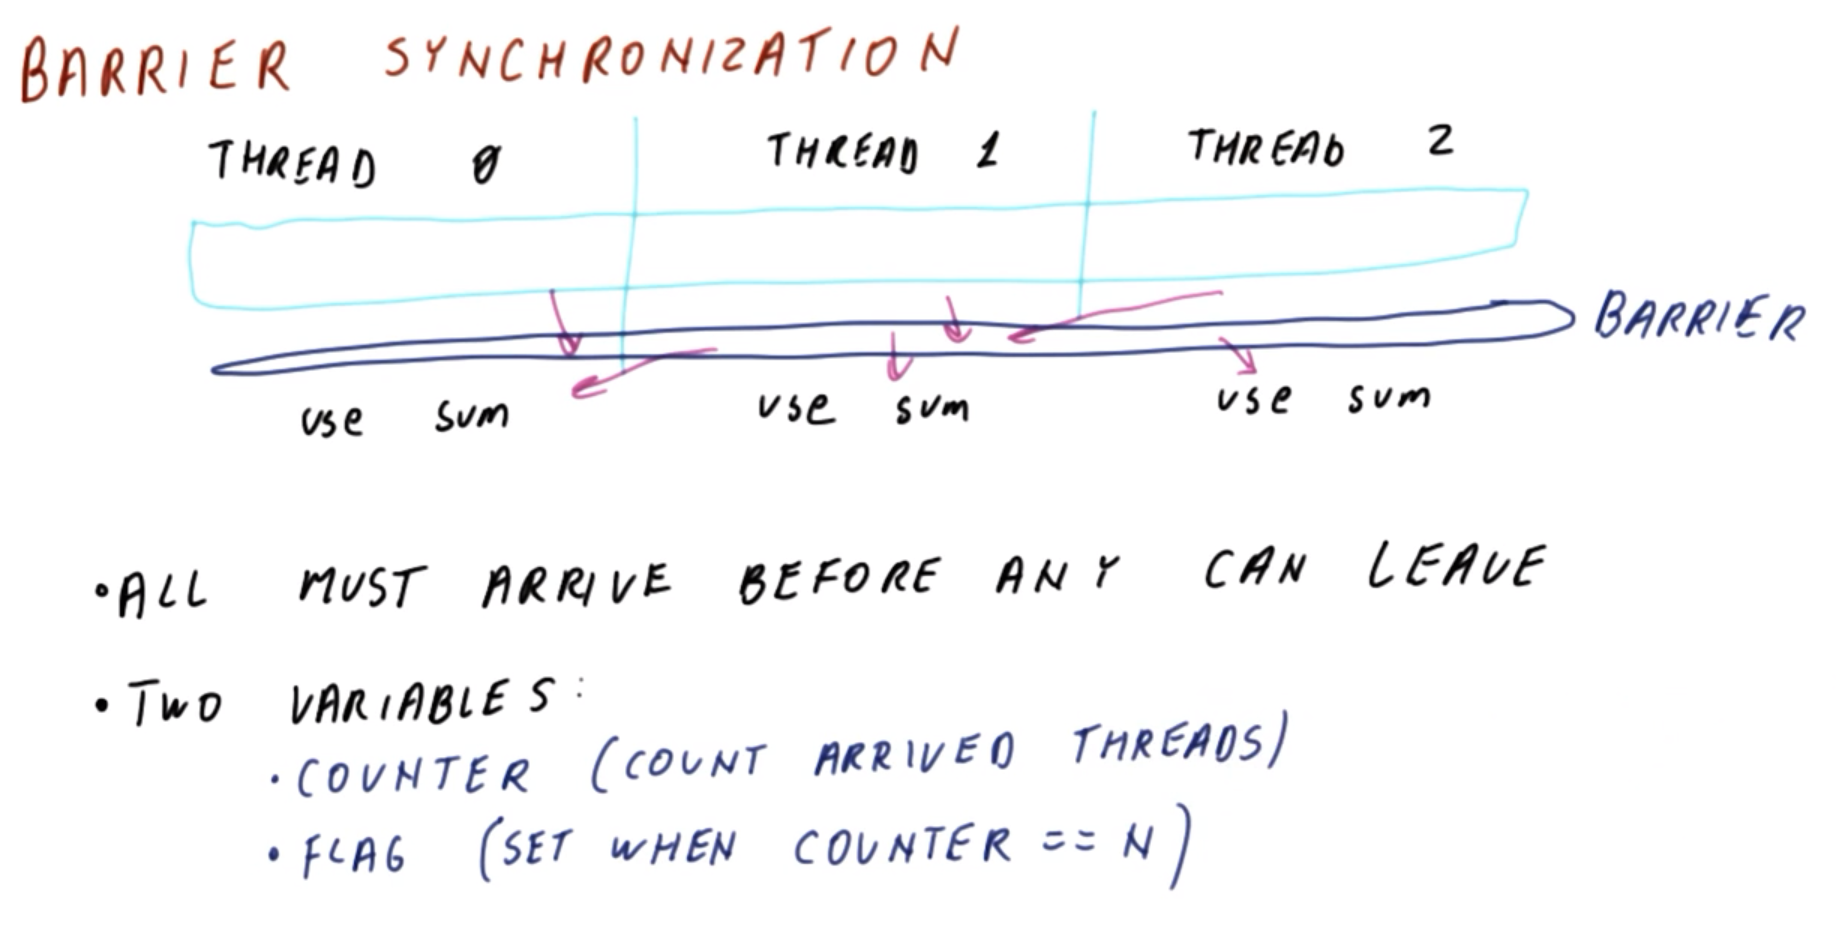 BARRIER SYNCHRONIZATION
THREAD 0 THREAD 1 THREAD 2
BARRIER
use sum use sum use sum
• ALL MUST ARRIVE BEFORE ANY CAN LEAVE
• TWO VARIABLES:
• COUNTER (COUNT ARRIVED THREADS)
• FLAG (SET WHEN COUNTER == N)